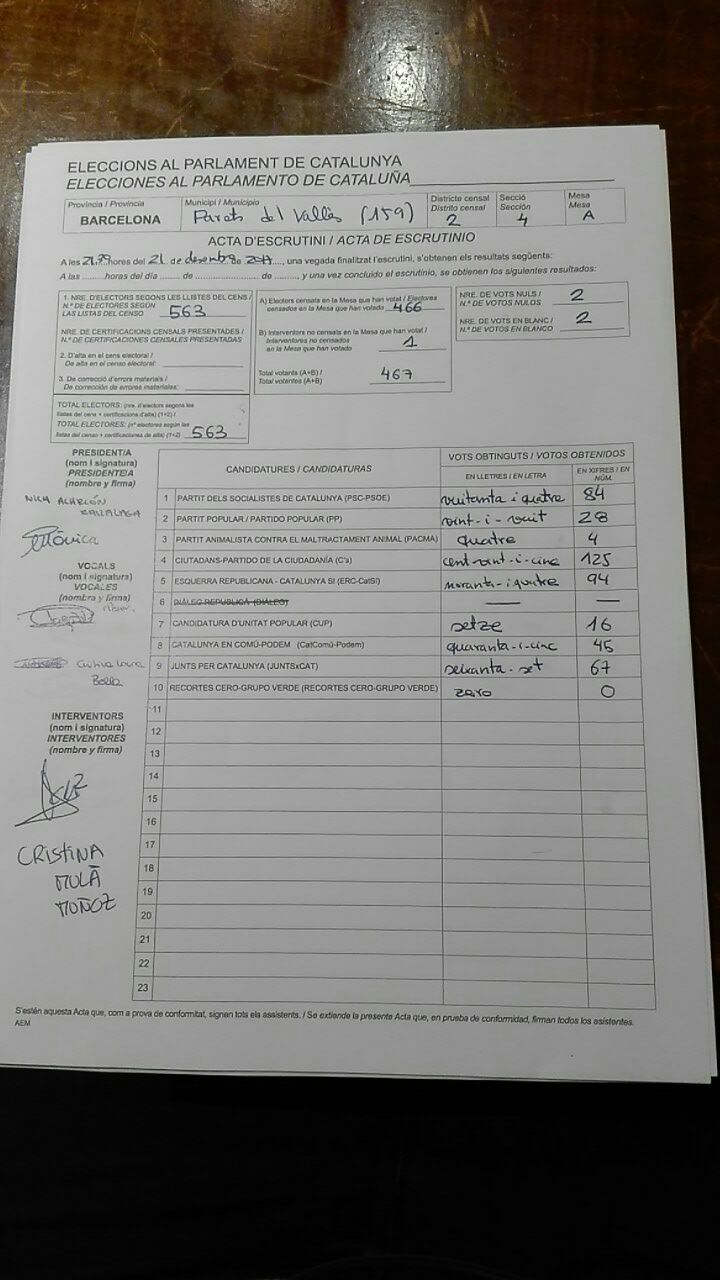 ELECCIONS AL PARLAMENT DE CATALUNYA
ELECCIONES AL PARLAMENTO DE CATALUÑA
Província / Provincia
BARCELONA
Municipi / Municipio
Parets del Vallès (159)
Districte censal
Distrito censal
2
Secció
Sección
4
Mesa
Mesa
A
ACTA D'ESCRUTINI / ACTA DE ESCRUTINIO
A les hores del 21 de desembre de 2017, una vegada finalitzat l'escrutini, s'obtenen els resultats següents:
A las ........ horas del día ....... de ........................ de ....., y una vez concluido el escrutinio, se obtienen los siguientes resultados:
1. NRE. D'ELECTORS SEGONS LES LLISTES DEL CENS /
N.º DE ELECTORES SEGÚN
LAS LISTAS DEL CENSO 563
NRE. DE CERTIFICACIONS CENSALS PRESENTADES /
N.º DE CERTIFICACIONES CENSALES PRESENTADAS
2. D'alta en el cens electoral /
De alta en el censo electoral:
3. De correcció d'errors materials /
De corrección de errores materiales:
TOTAL ELECTORS: (nre. d'electors segons les
llistes del cens + certificacions d'alta) (1+2) /
TOTAL ELECTORES: (nº electores según las
listas del censo + certificaciones de alta) (1+2) 563
A) Electors censats en la Mesa que han votat / Electores
censados en la Mesa que han votado 466
B) Interventors no censats en la Mesa que han votat /
Interventores no censados
en la Mesa que han votado 1
Total votants (A+B) /
Total votantes (A+B) 467
NRE. DE VOTS NULS /
N.º DE VOTOS NULOS 2
NRE. DE VOTS EN BLANC /
N.º DE VOTOS EN BLANCO 2
PRESIDENT/A
(nom i signatura)
PRESIDENTE/A
(nombre y firma)
VOCALS
(nom i signatura)
VOCALES
(nombre y firma)
INTERVENTORS
(nom i signatura)
INTERVENTORES
(nombre y firma)
CRISTINA
MULÀ
MUÑOZ
CANDIDATURES / CANDIDATURAS
VOTS OBTINGUTS / VOTOS OBTENIDOS
EN LLETRES / EN LETRA
EN XIFRES / EN NÚM.
1 PARTIT DELS SOCIALISTES DE CATALUNYA (PSC-PSOE) vuitanta i quatre 84
2 PARTIT POPULAR / PARTIDO POPULAR (PP) vint-i-vuit 28
3 PARTIT ANIMALISTA CONTRA EL MALTRACTAMENT ANIMAL (PACMA) quatre 4
4 CIUTADANS-PARTIDO DE LA CIUDADANÍA (C's) cent-vint-i-cinc 125
5 ESQUERRA REPUBLICANA - CATALUNYA SÍ (ERC-CatSí) noranta-i quatre 94
6 DIÀLEG REPUBLICÀ (DIÀLEG) — —
7 CANDIDATURA D'UNITAT POPULAR (CUP) setze 16
8 CATALUNYA EN COMÚ-PODEM (CatComú-Podem) quaranta-i-cinc 45
9 JUNTS PER CATALUNYA (JUNTSxCAT) seixanta-set 67
10 RECORTES CERO-GRUPO VERDE (RECORTES CERO-GRUPO VERDE) zero 0
11
12
13
14
15
16
17
18
19
20
21
22
23
S'estén aquesta Acta que, com a prova de conformitat, signen tots els assistents. / Se extiende la presente Acta que, en prueba de conformidad, firman todos los asistentes.
AEM